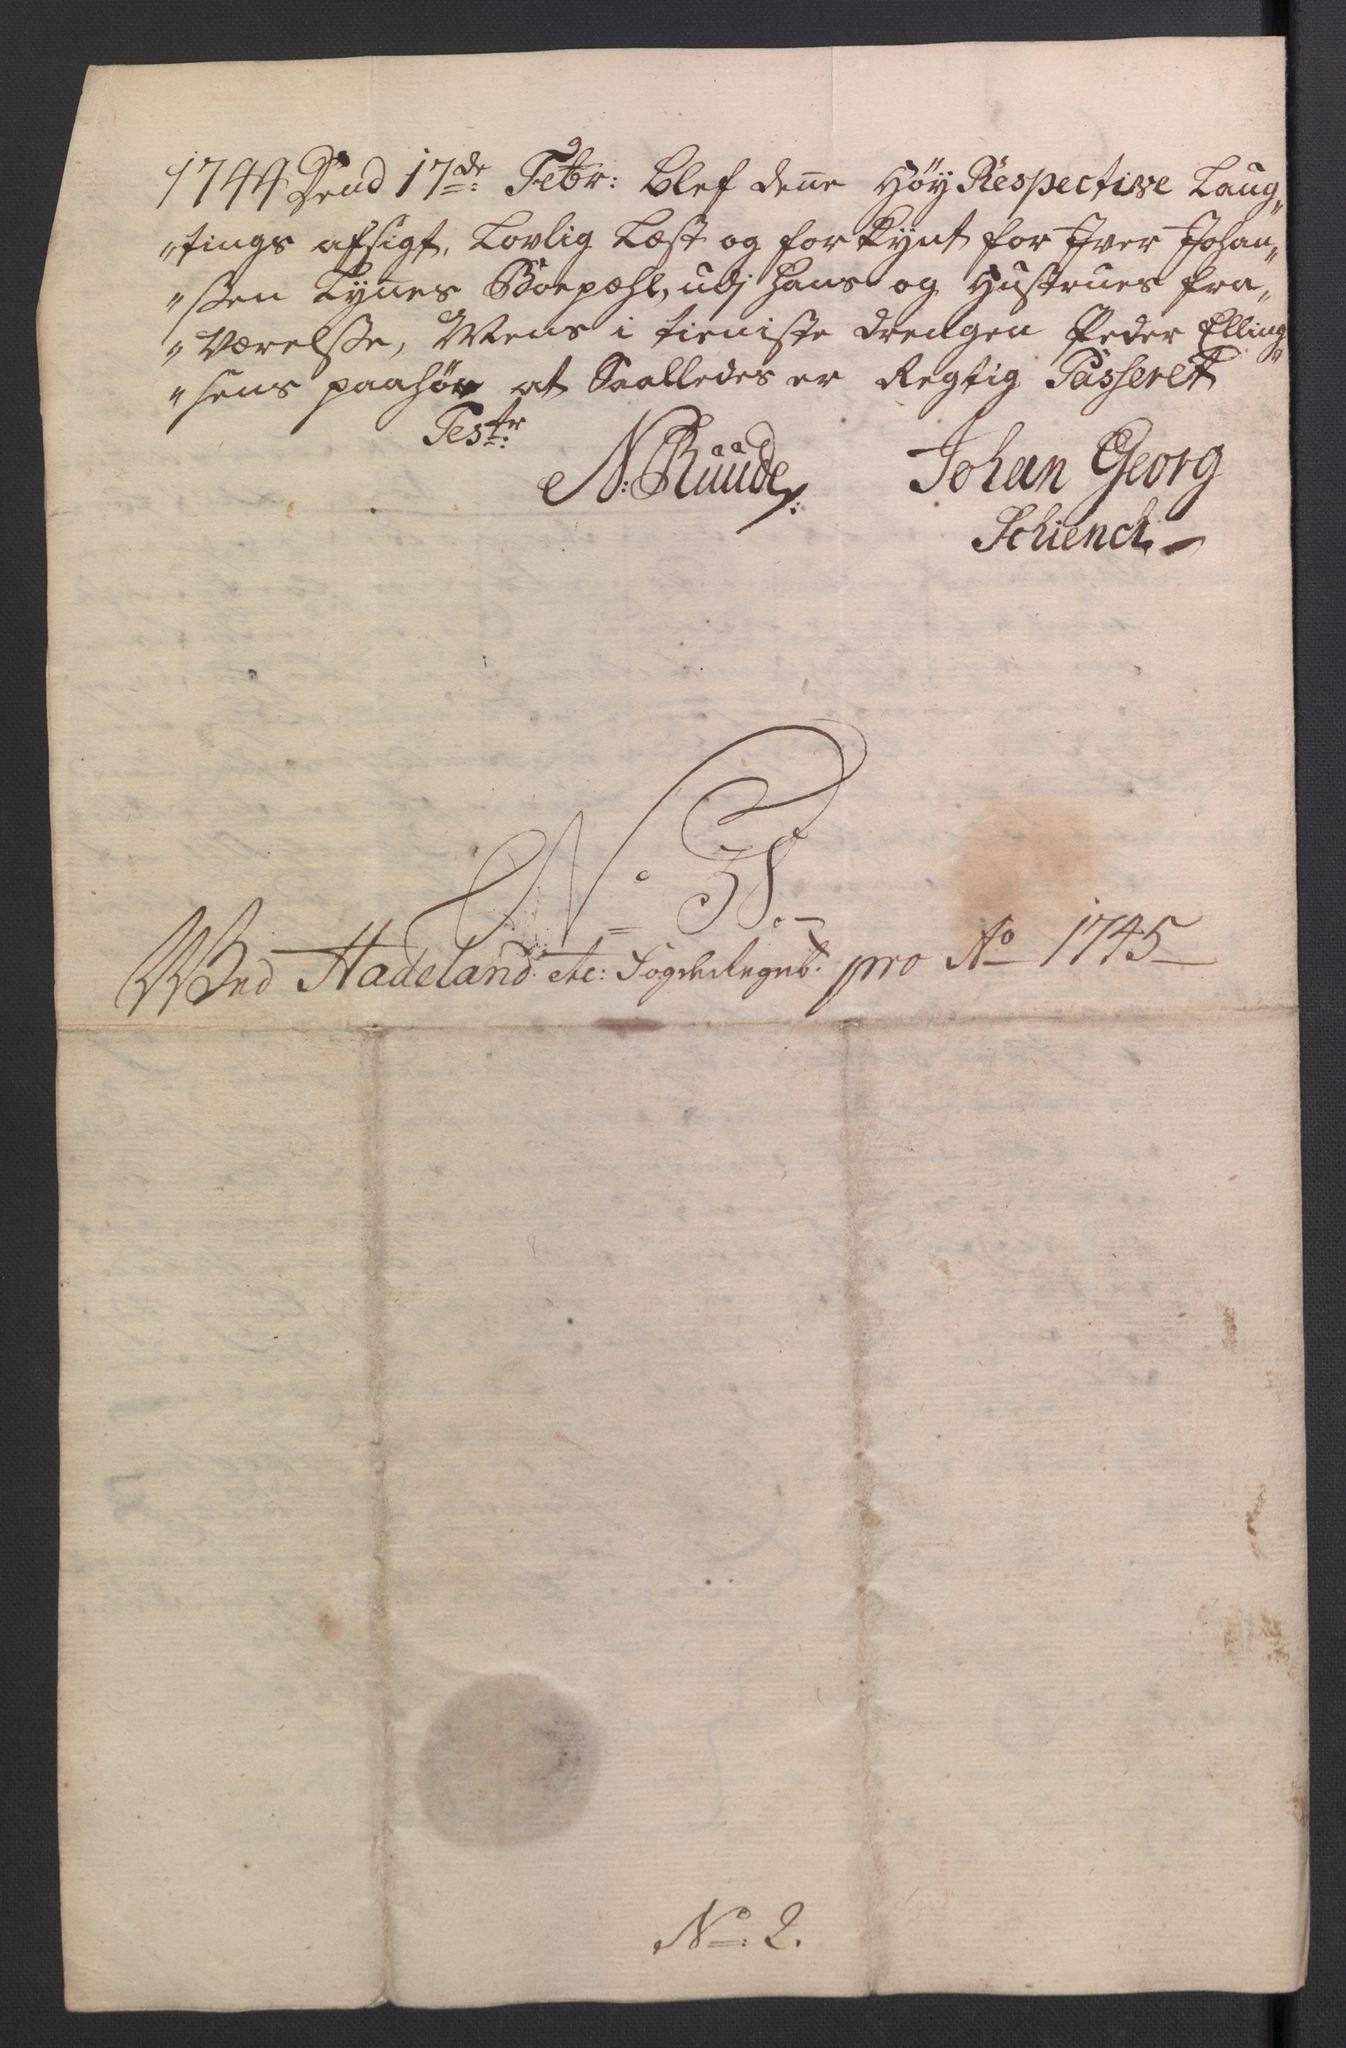 1744 Dend 17de: Febr: blef denne Høy Respective Laug„
„tings afsigt, Lovlig Læst og forkynt for Iver Johan„
„ßen Lynes Boepæhl, udj hans og Hustrues fra„
„værelsse, Mens i tieniste drengen Peder Elling„
„sens paahør at Saalledes er Regtig Passeret
Testr:
N: Ruude: Johan Georg
Schienck
No 38.
Wed Hadeland etc: Fogderiregnb. pro Ao 1745
No: 2.